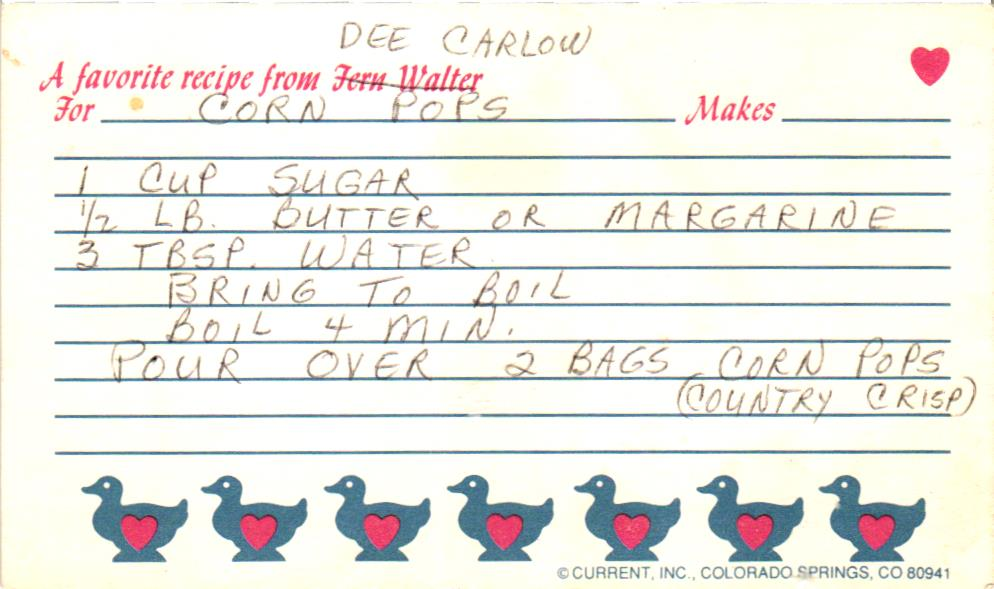 DEE CARLOW
A favorite recipe from Fern Walter
For CORN POPS Makes
1 CUP SUGAR
1/2 LB. BUTTER OR MARGARINE
3 TBSP. WATER
BRING TO BOIL
BOIL 4 MIN.
POUR OVER 2 BAGS CORN POPS
(COUNTRY CRISP)
© CURRENT, INC., COLORADO SPRINGS, CO 80941